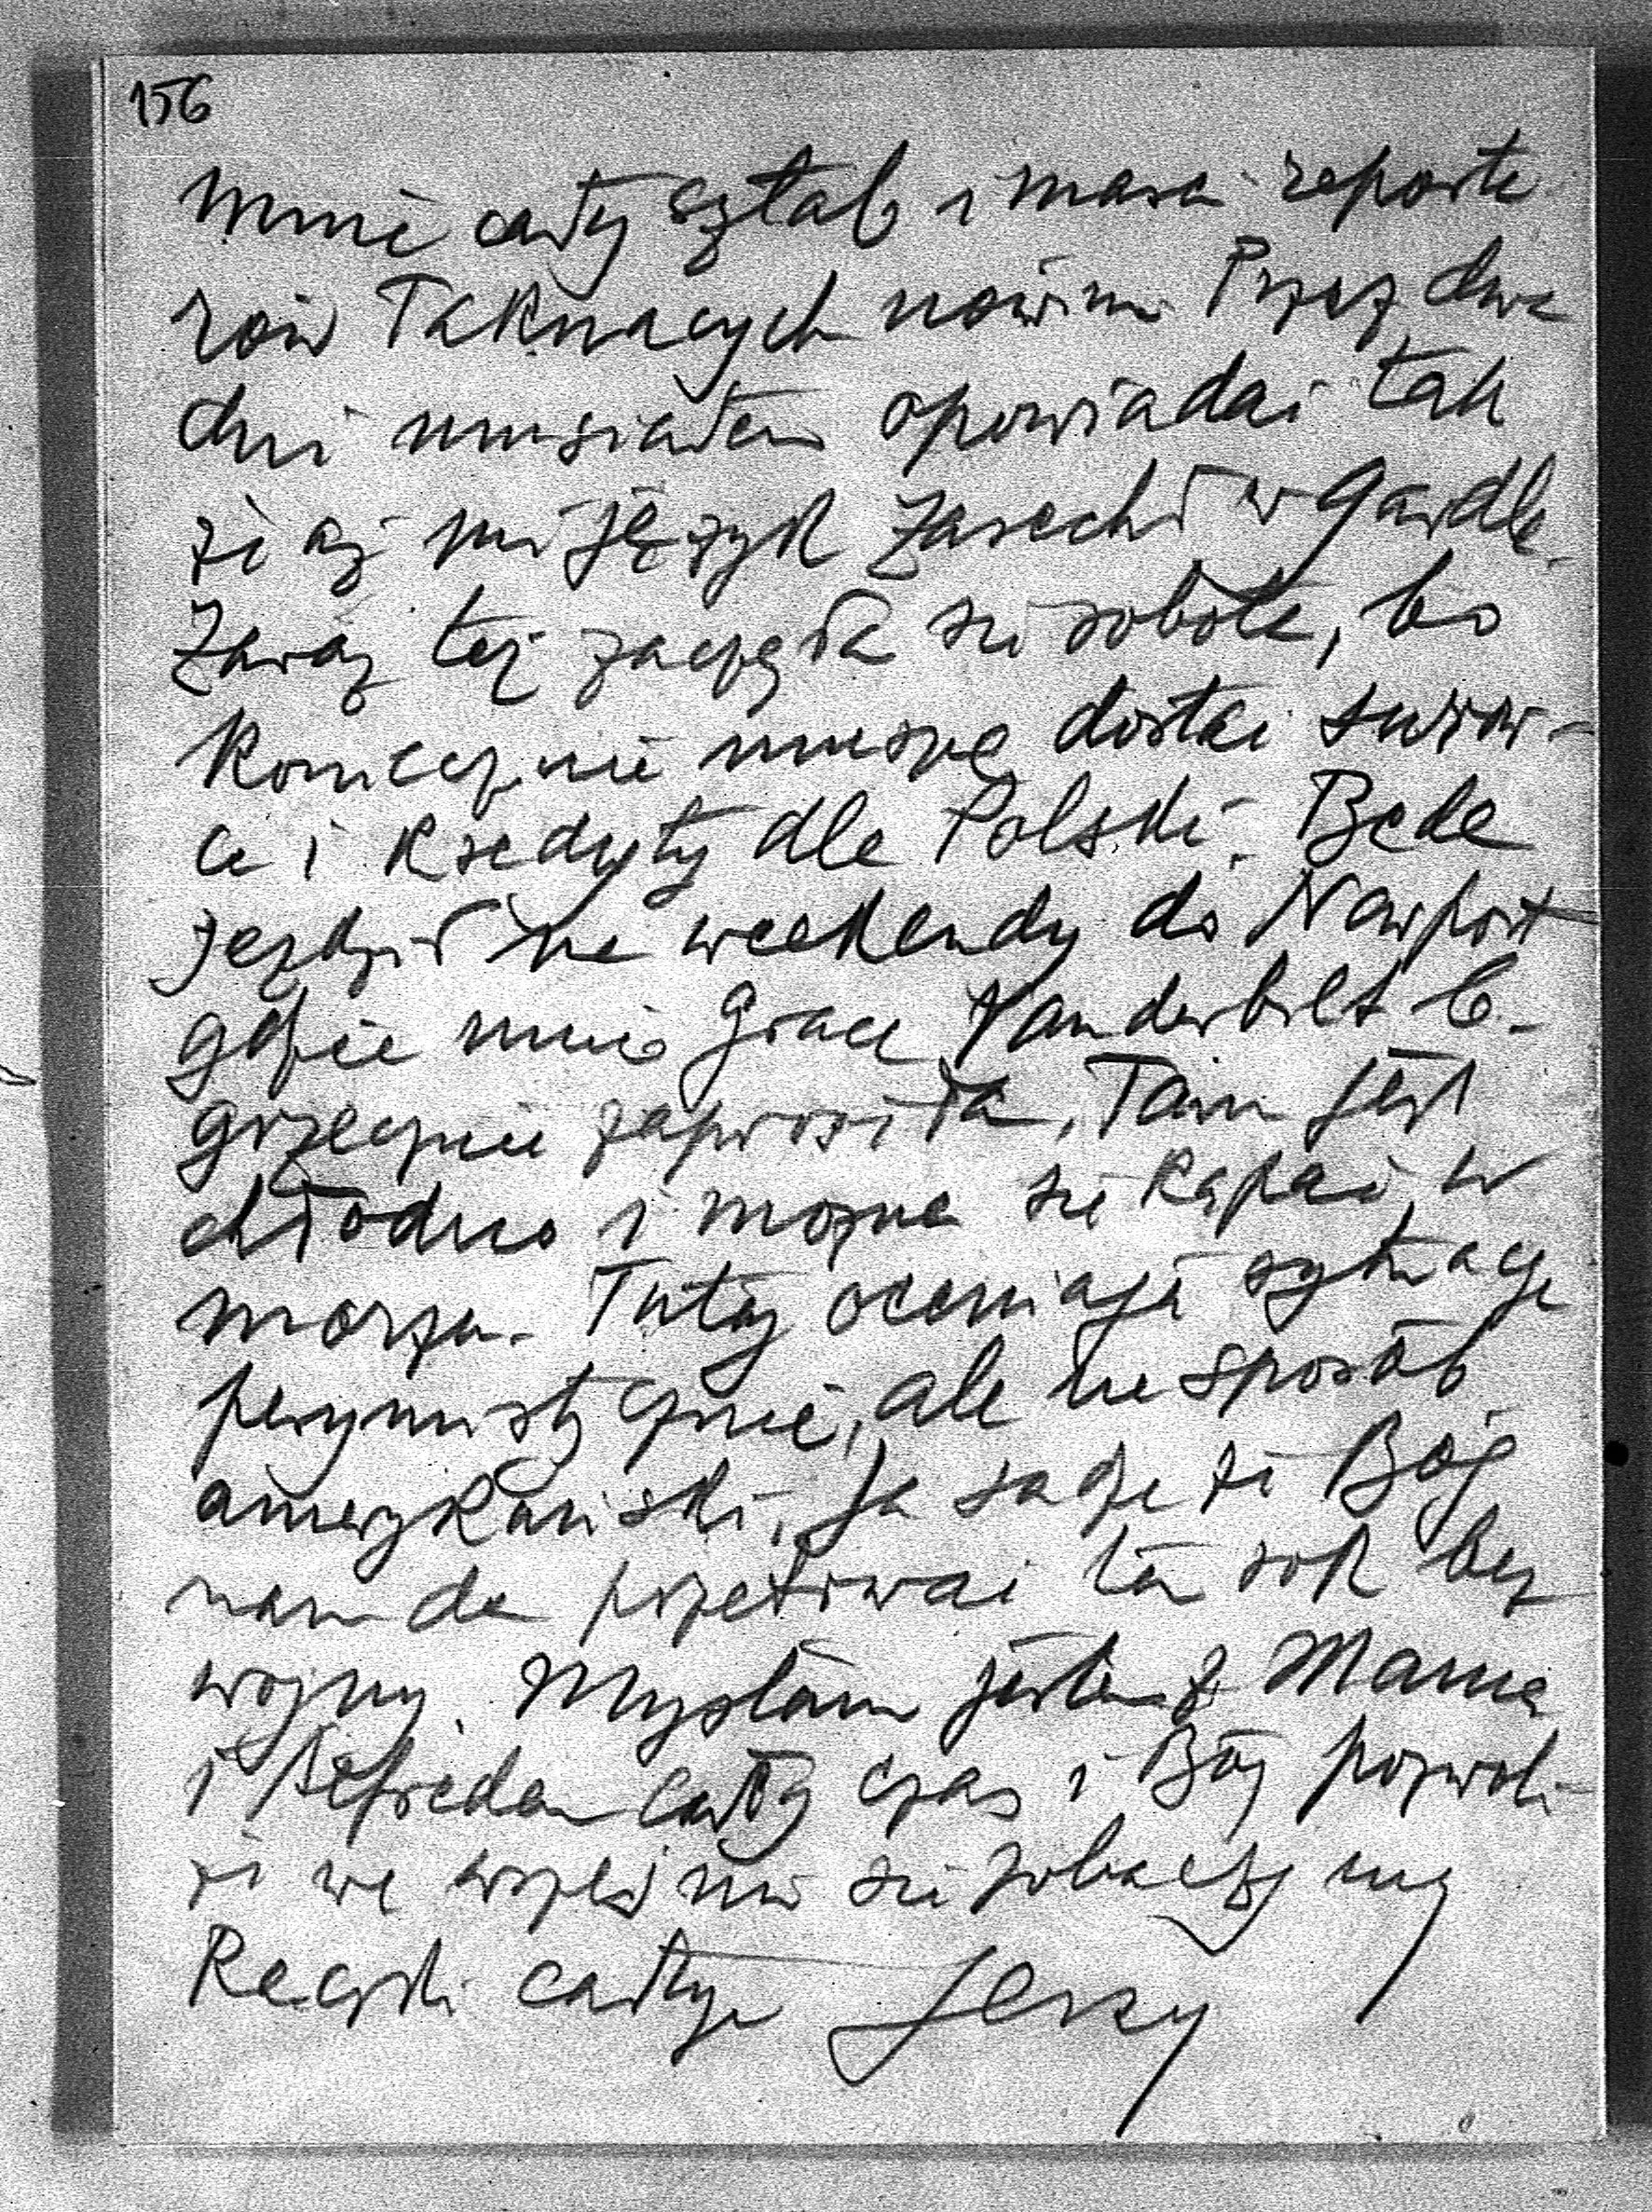 156
mnie cały sztab i masa reporte
rów łaknących nowin. Przez dwa
dni musiałem opowiadać tak
że aż mi język zasechł w gardle.
Zaraz też zaczęła się robota, bo
koniecznie muszę dostać surow-
ce i kredyty dla Polski. Będę
jeździł na weekendy do Newport
gdzie mnie Grace Vanderbilt b.
grzecznie zaprosiła. Tam jest
chłodno i można się kąpać w
morzu. Tutaj oceniają sytuację
pesymistycznie, ale na sposób
amerykański. Ja sądzę że Bóg
nam da przetrwać ten rok bez
wojny. Myślami jestem z Mamą
i Alfredem cały czas i Bóg pozwoli
że we wrześniu się zobaczymy
Rączki całuję Jerzy